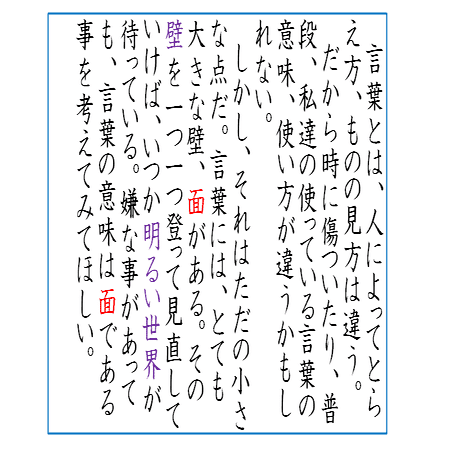 言葉とは、人によってとら
え方、ものの見方は違う。
だから時に傷ついたり、普
段、私達の使っている言葉の
意味、使い方が違うかもし
れない。
しかし、それはただの小さ
な点だ。言葉には、とても
大きな壁、面がある。その
壁を一つ一つ登って見直して
いけば、いつか明るい世界が
待っている。嫌な事があって
も、言葉の意味は面である
事を考えてみてほしい。